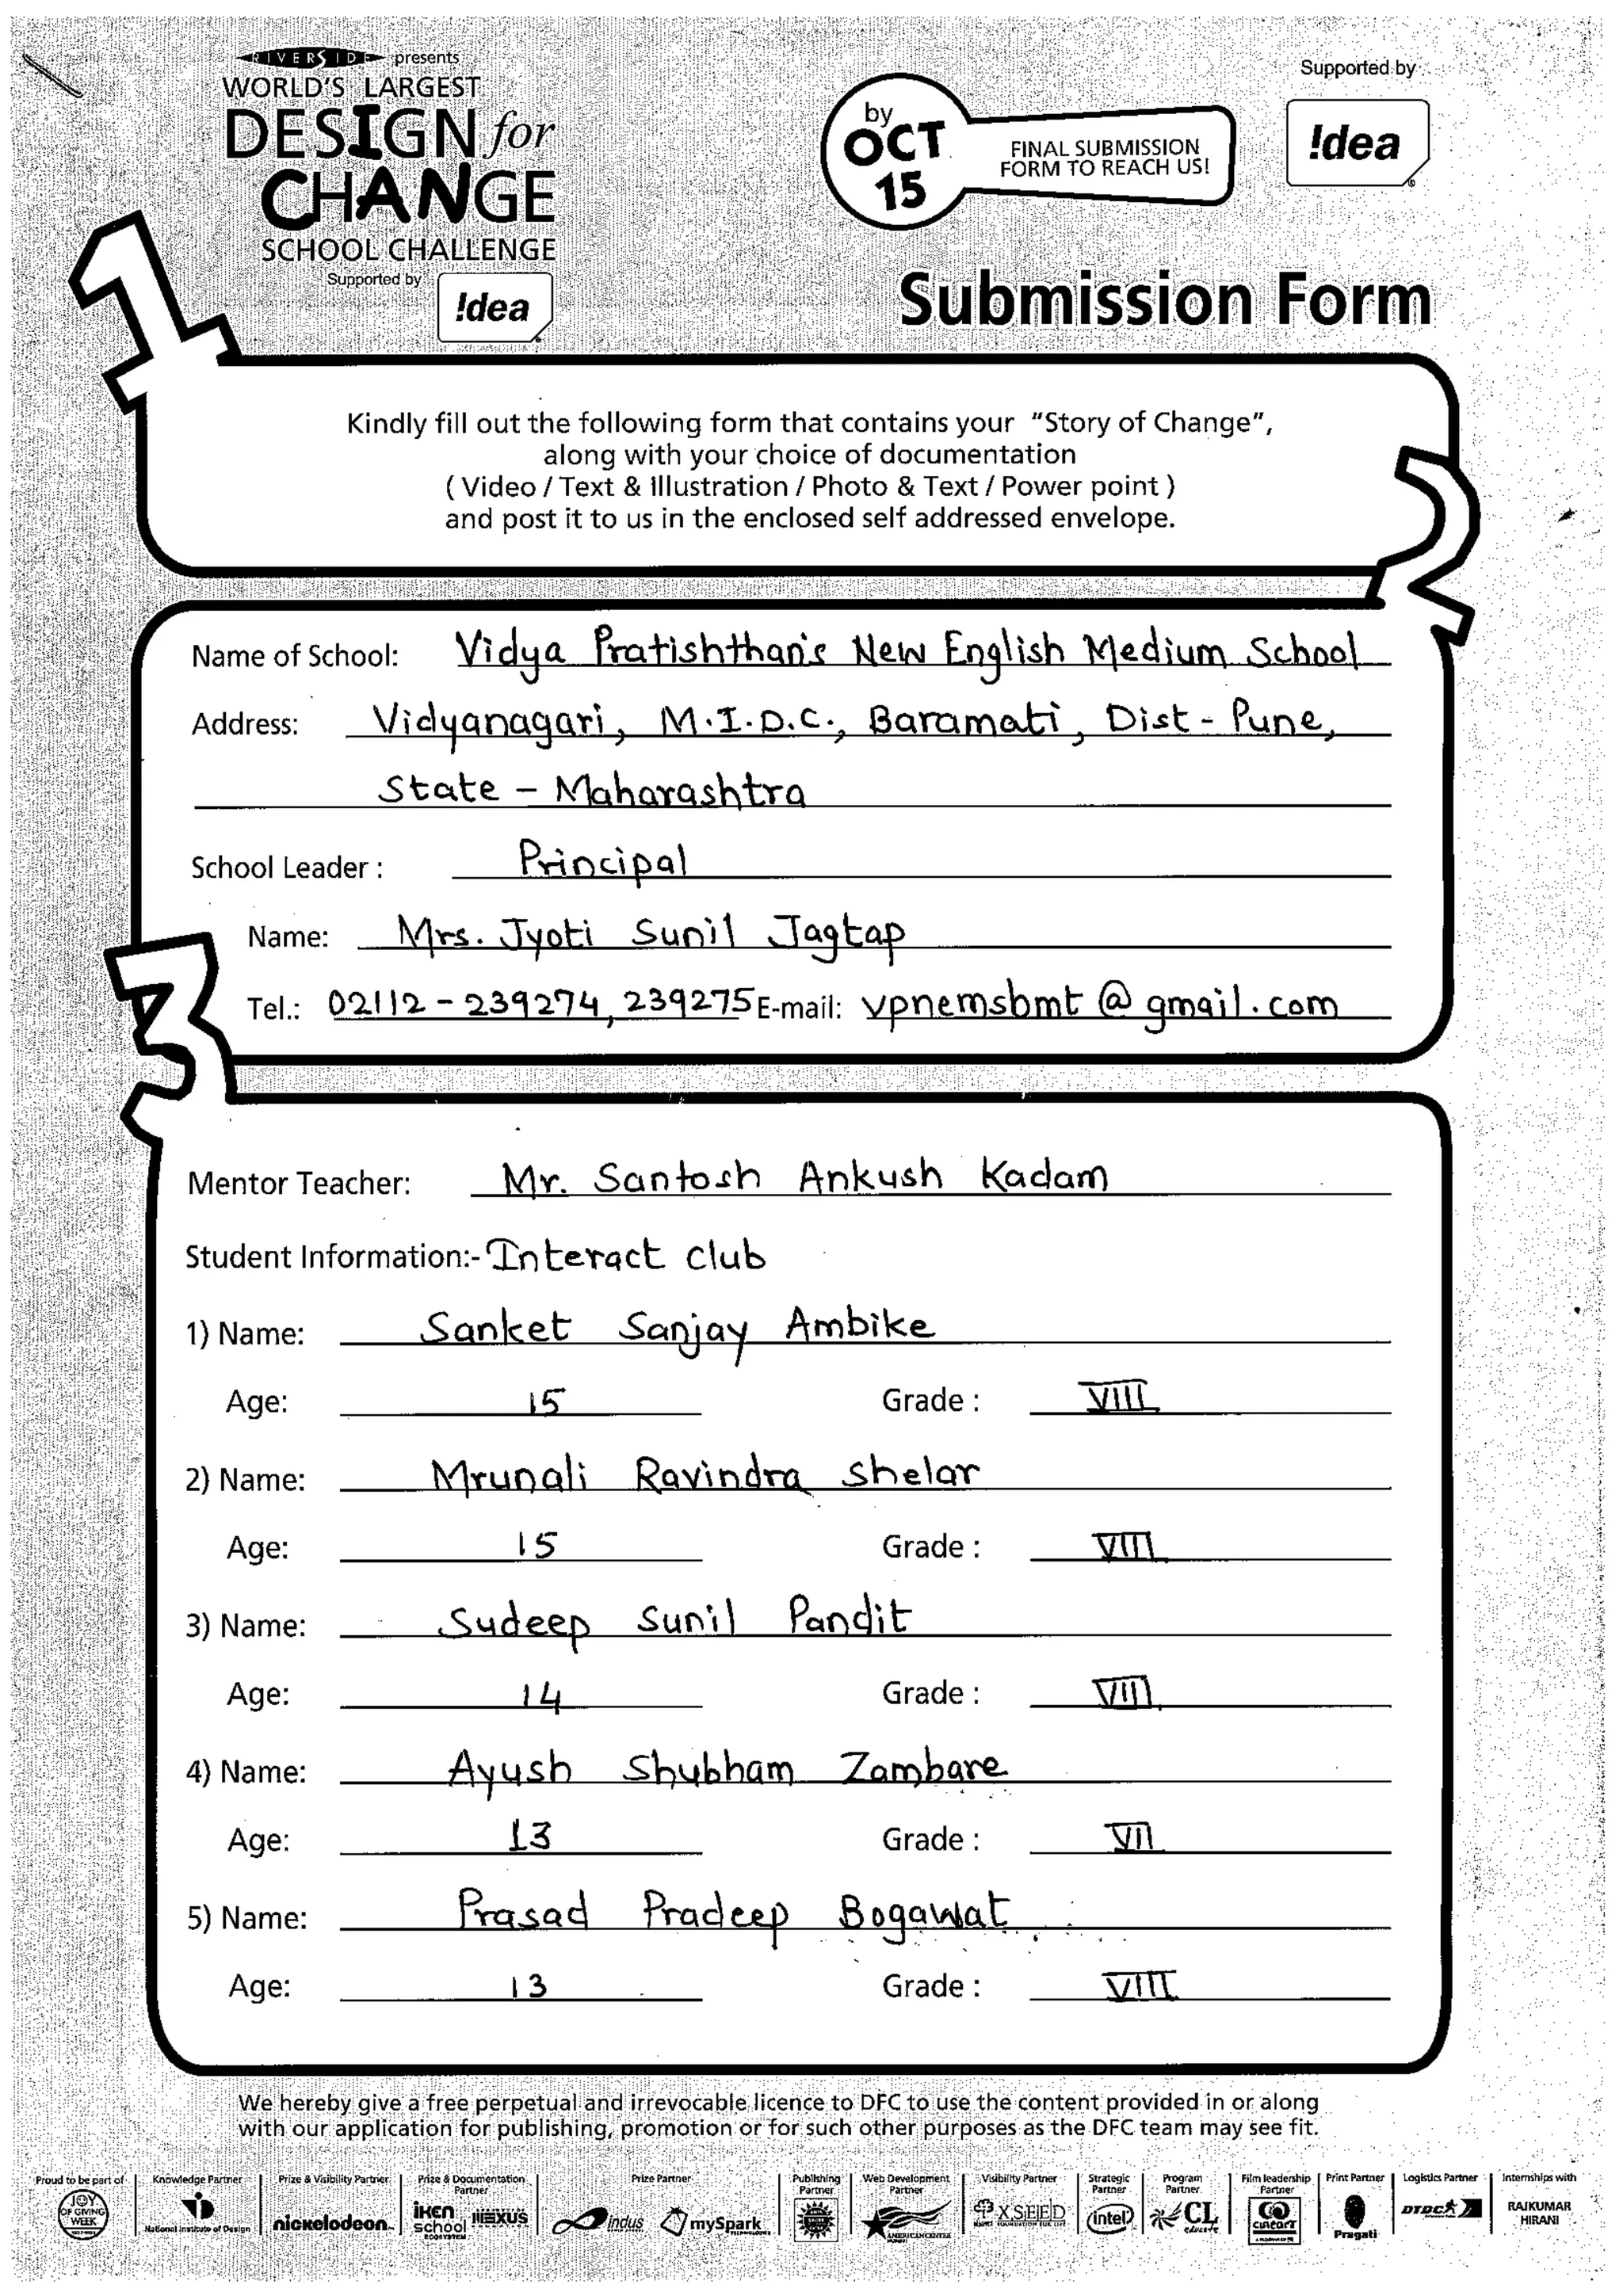 RIVERSIDE presents
WORLD'S LARGEST
DESIGN for
CHANGE
SCHOOL CHALLENGE
Supported by
!dea
by
OCT
15
FINAL SUBMISSION
FORM TO REACH US!
Supported by
!dea
Submission Form
1
Kindly fill out the following form that contains your "Story of Change",
along with your choice of documentation
( Video / Text & Illustration / Photo & Text / Power point )
and post it to us in the enclosed self addressed envelope.
2
Name of School: Vidya Pratishthan's New English Medium School
Address: Vidyanagari, M.I.D.C., Baramati, Dist - Pune,
State - Maharashtra
School Leader : Principal
Name: Mrs. Jyoti Sunil Jagtap
Tel.: 02112 - 239274, 239275 E-mail: vpnemsbmt @ gmail.com
3
Mentor Teacher: Mr. Santosh Ankush Kadam
Student Information:- Interact club
1) Name: Sanket Sanjay Ambike
Age: 15 Grade : VIII
2) Name: Mrunali Ravindra Shelar
Age: 15 Grade : VIII
3) Name: Sudeep Sunil Pandit
Age: 14 Grade : VIII
4) Name: Ayush Shubham Zambare
Age: 13 Grade : VII
5) Name: Prasad Pradeep Bogawat
Age: 13 Grade : VIII
We hereby give a free perpetual and irrevocable licence to DFC to use the content provided in or along
with our application for publishing, promotion or for such other purposes as the DFC team may see fit.
Proud to be part of Knowledge Partner Prize & Visibility Partner Prize & Documentation Partner Prize Partner Publishing Partner Web Development Partner Visibility Partner Strategic Partner Program Partner Film leadership Partner Print Partner Logistics Partner Internships with
JOY OF GIVING WEEK National Institute of Design nickelodeon iKEN school NEXUS indus mySpark AMERICAN CENTER XSEED intel CL educate CINEART Pragati DTDC RAJKUMAR HIRANI